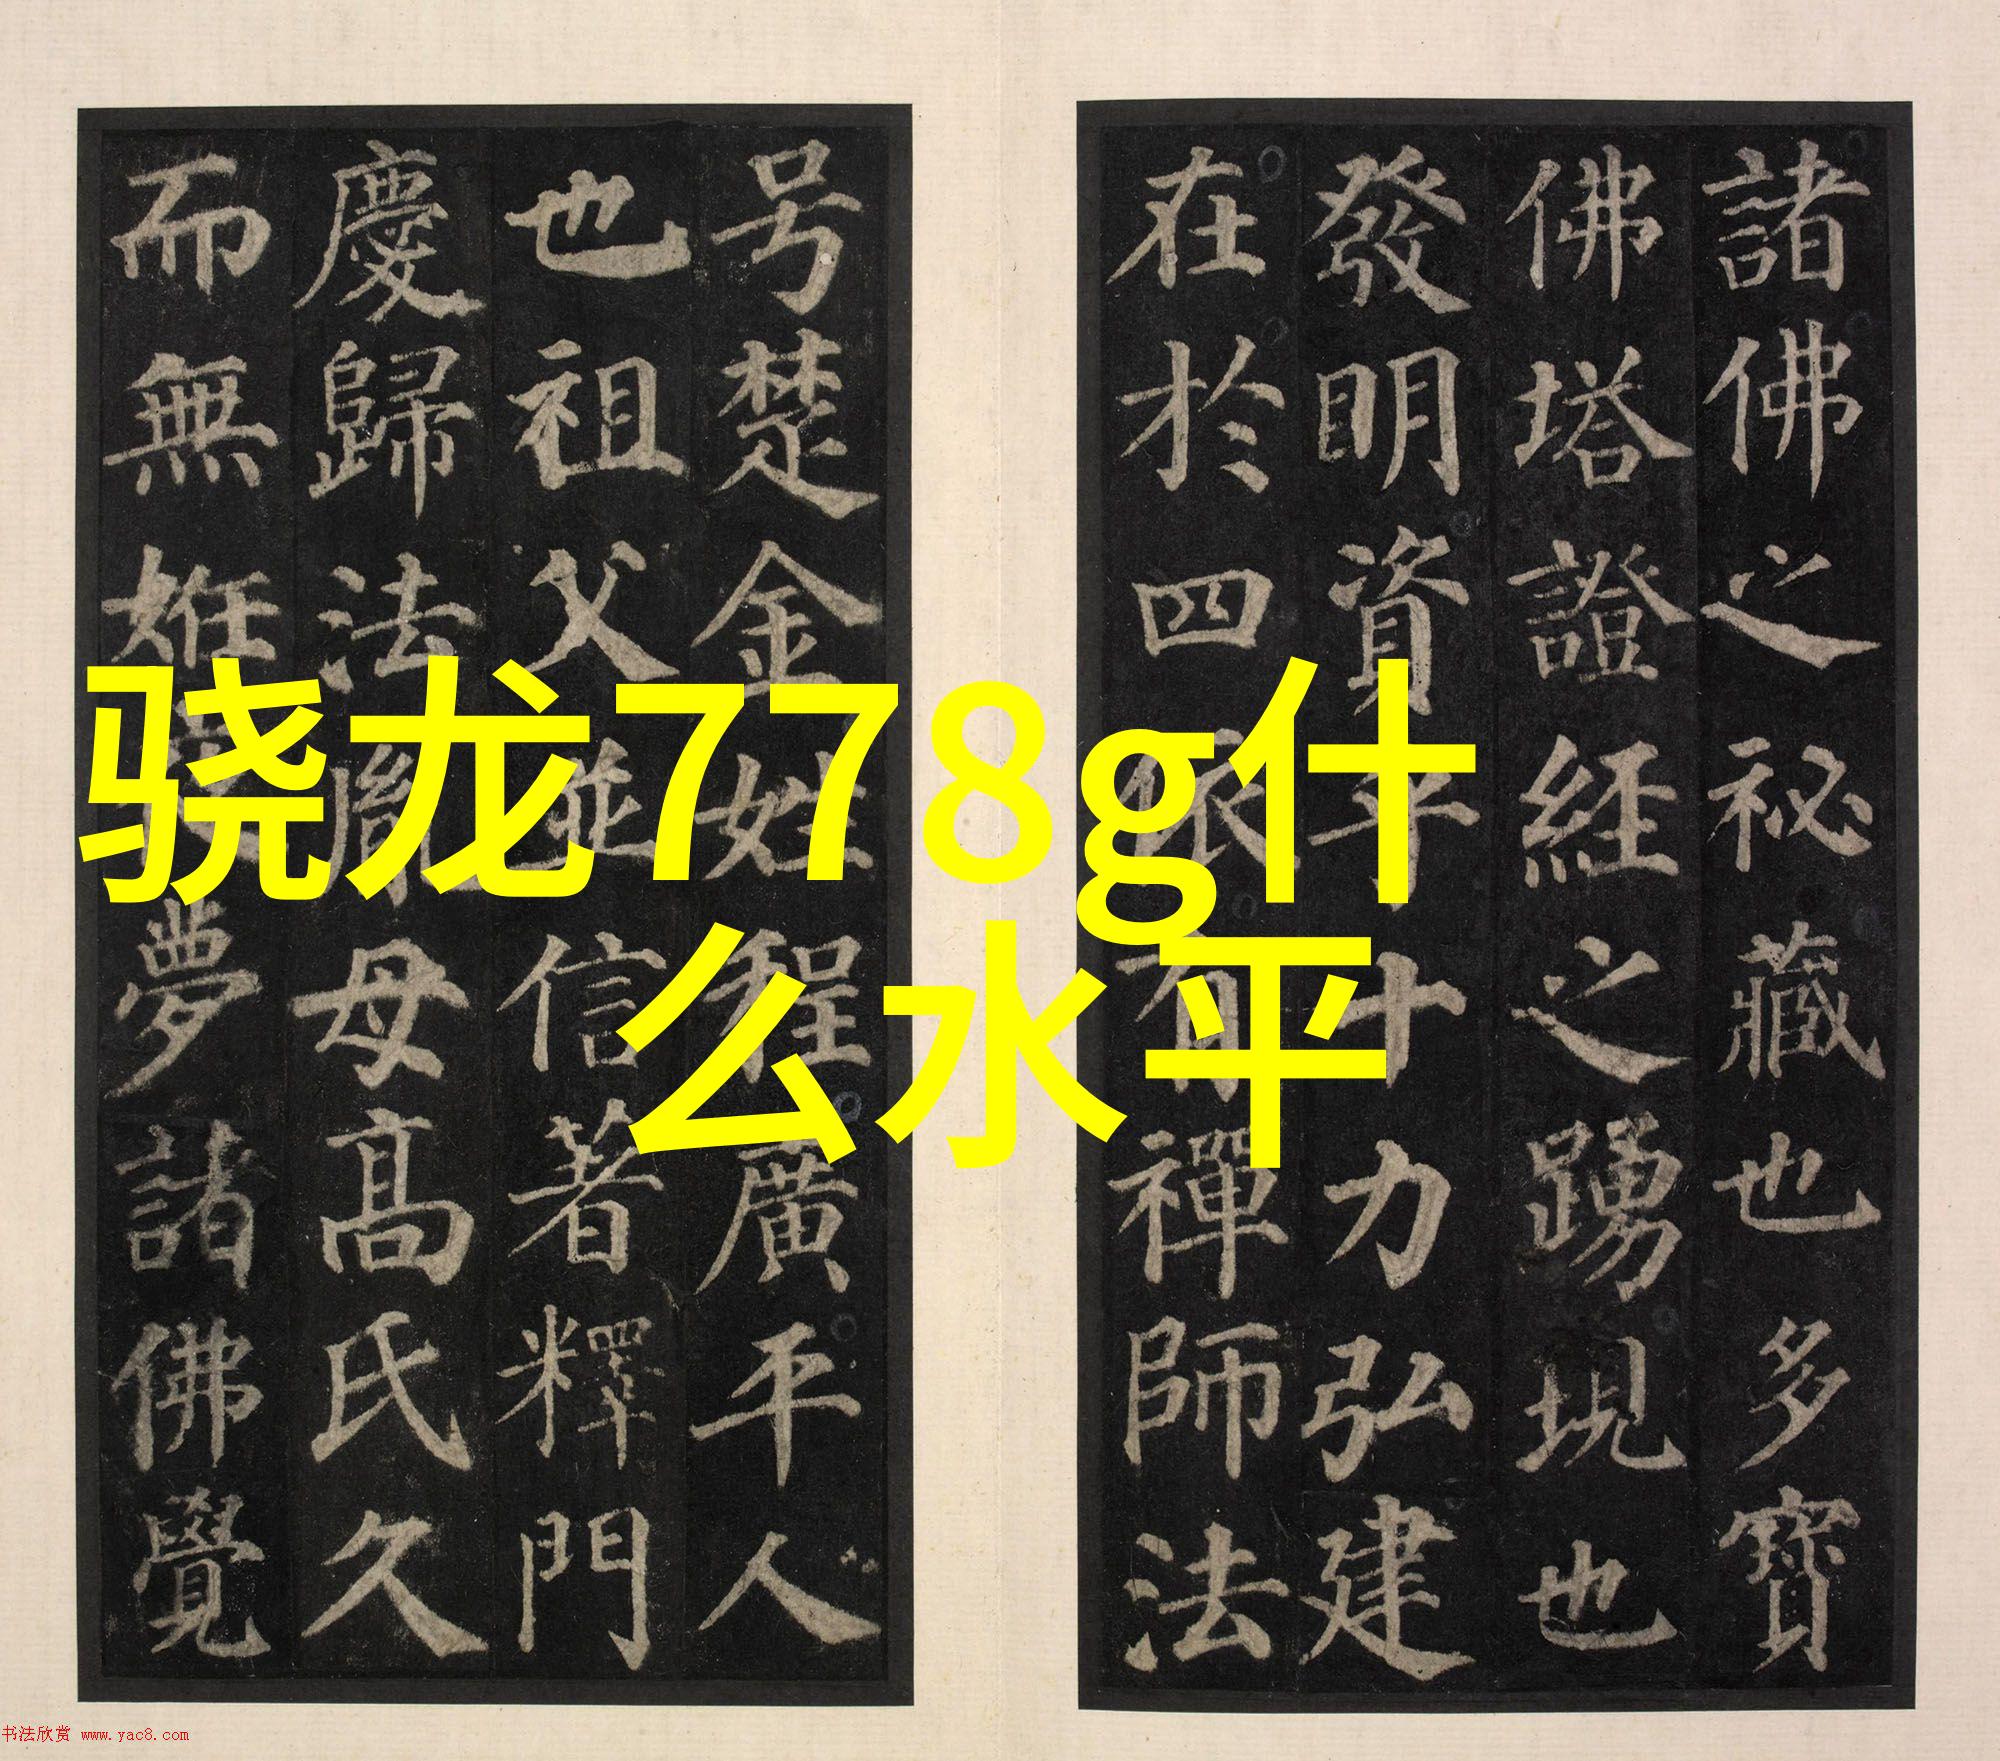 諸佛之祕藏也多寶
佛塔證經之踴現也
發明資乎十力弘建
在於四依有禪師法
号楚金姓程廣平人
也祖父並信著釋門
慶歸法胤母高氏久
而無妊夢諸佛覺
骁龙778g什
么水平
书法欣赏 www.yac8.com